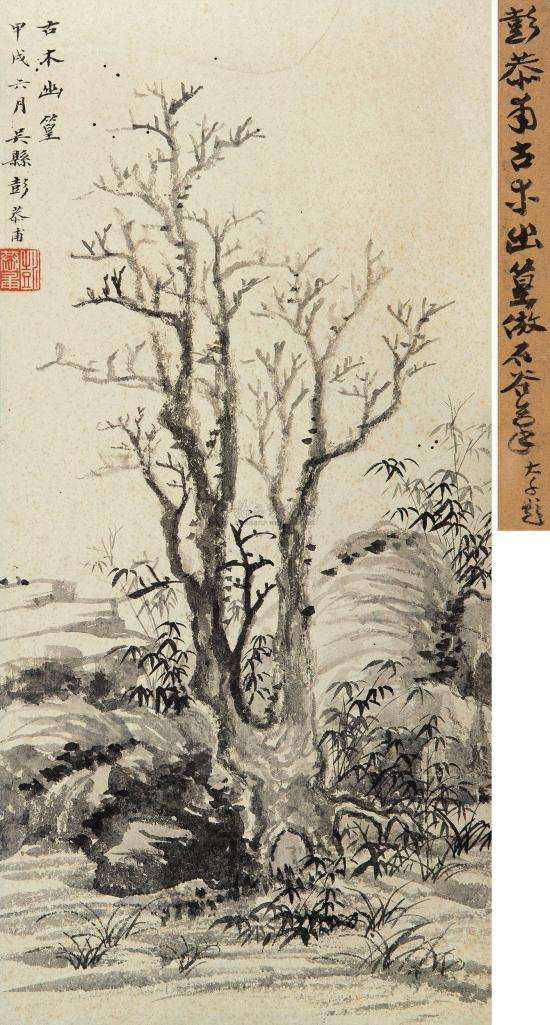 古木幽篁
甲戌六月吳縣彭恭甫
彭恭甫古木幽篁仿石谷筆
大千題